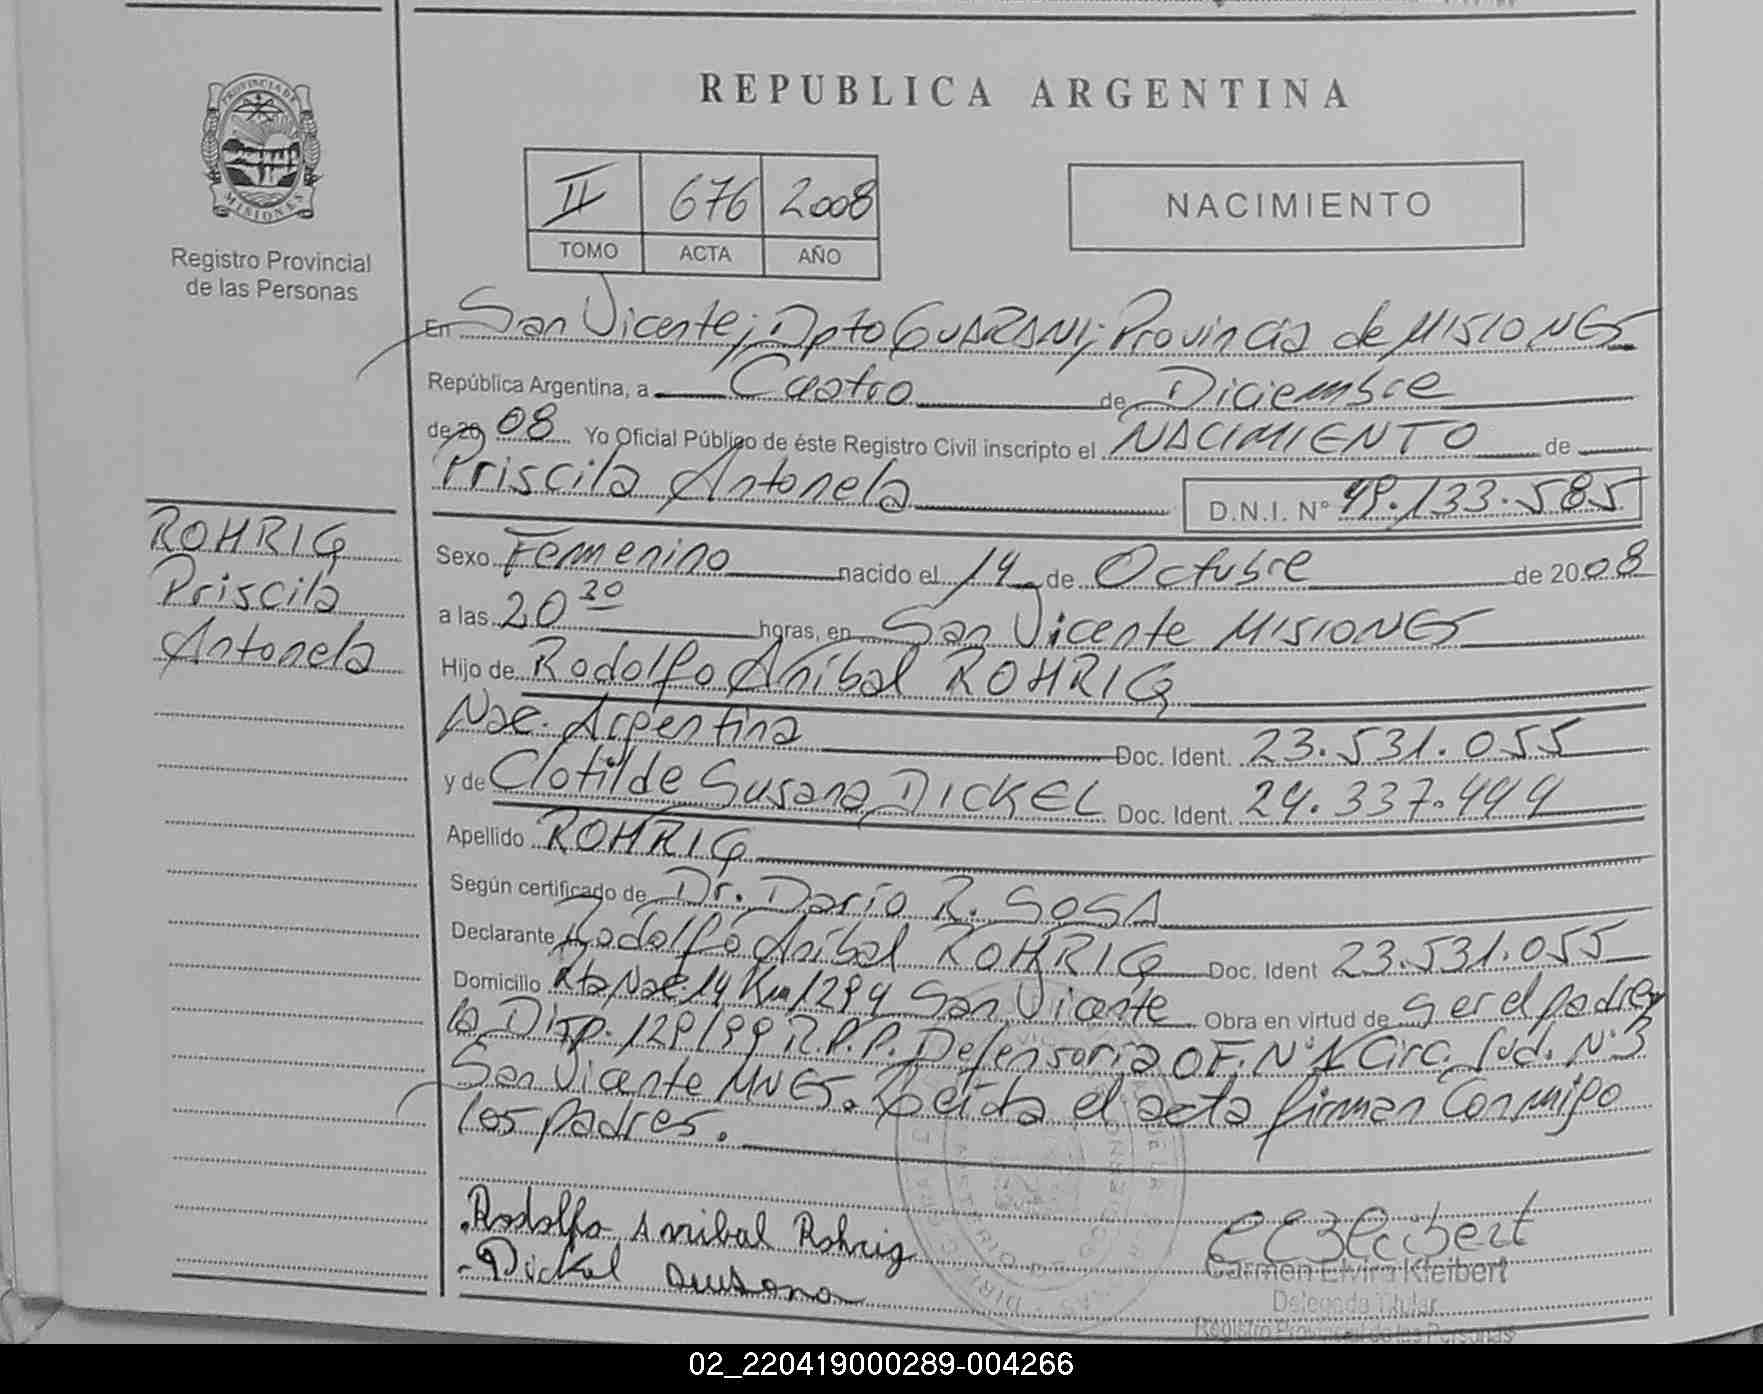 REPUBLICA ARGENTINA
PROVINCIA DE
MISIONES
Registro Provincial
de las Personas
II 676 2008
TOMO ACTA AÑO
NACIMIENTO
En San Vicente; Dpto GUARANI; Provincia de MISIONES
República Argentina, a Cuatro de Diciembre
de 20 08 Yo Oficial Público de éste Registro Civil inscripto el NACIMIENTO de
Priscila Antonela D.N.I. N° 49.133.585
ROHRIG
Priscila
Antonela
Sexo Femenino nacido el 14 de Octubre de 20 08
a las 20 30 horas, en San Vicente MISIONES
Hijo de Rodolfo Aníbal ROHRIG
Nac. Argentina Doc. Ident. 23.531.055
y de Clotilde Susana DICKEL Doc. Ident. 24.337.444
Apellido ROHRIG
Según certificado de Dr. Darío R. SOSA
Declarante Rodolfo Aníbal ROHRIG Doc. Ident 23.531.055
Domicilio Rta Nac. 14 Km 1294 San Vicente Obra en virtud de ser el padre y
la Disp. 129/99 R.P.P. Defensoría OF. N°1 Circ. Jud. N°3
San Vicente MNES. Leída el acta firman Conmigo
los padres.
Rodolfo Annibal Rohrig
Dickel Susana
Carmen Elvira Kleibert
Delegada Titular
Registro Provincial de las Personas
02_220419000289-004266